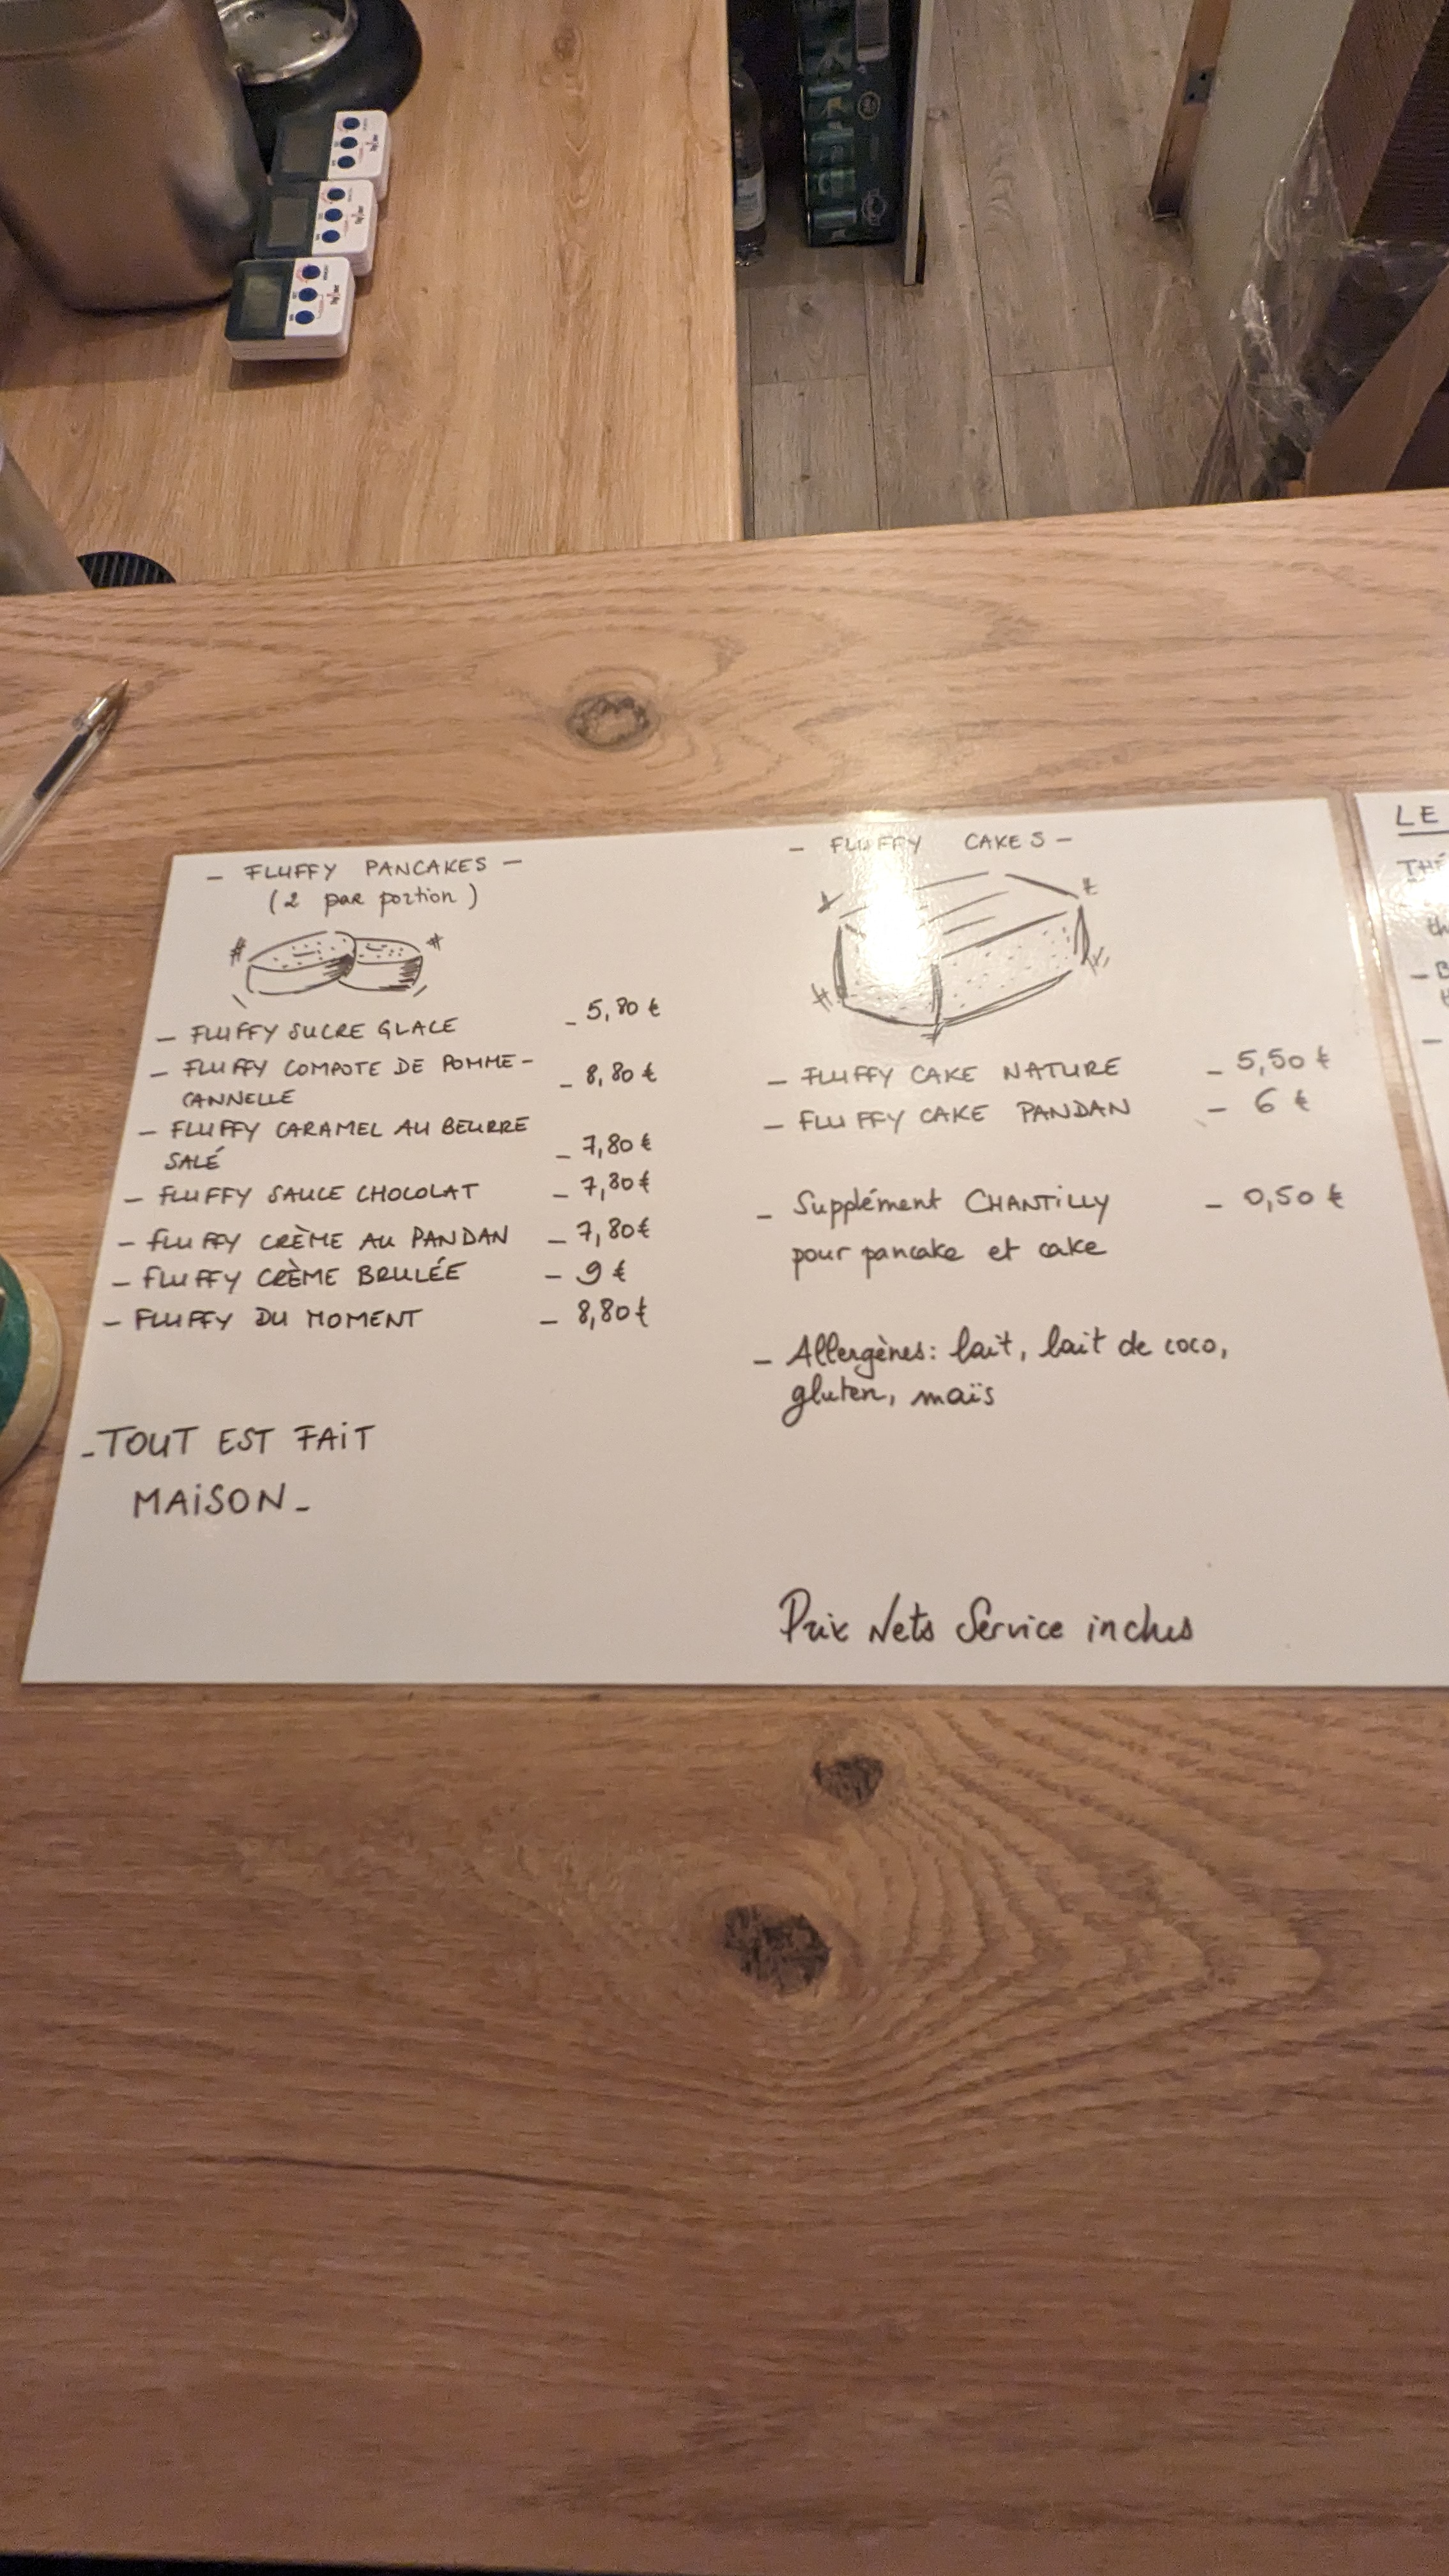 - FLUFFY PANCAKES -
(2 par portion)
- FLUFFY SUCRE GLACE - 5,80 €
- FLUFFY COMPOTE DE POMME-
CANNELLE - 8,80 €
- FLUFFY CARAMEL AU BEURRE
SALÉ - 7,80 €
- FLUFFY SAUCE CHOCOLAT - 7,80 €
- FLUFFY CRÈME AU PANDAN - 7,80 €
- FLUFFY CRÈME BRULÉE - 9 €
- FLUFFY DU MOMENT - 8,80 €
- TOUT EST FAIT
MAISON -
- FLUFFY CAKES -
- FLUFFY CAKE NATURE - 5,50 €
- FLUFFY CAKE PANDAN - 6 €
- Supplément CHANTILLY - 0,50 €
pour pancake et cake
- Allergènes: lait, lait de coco,
gluten, maïs
Prix Nets Service inclus
LE
THÉ